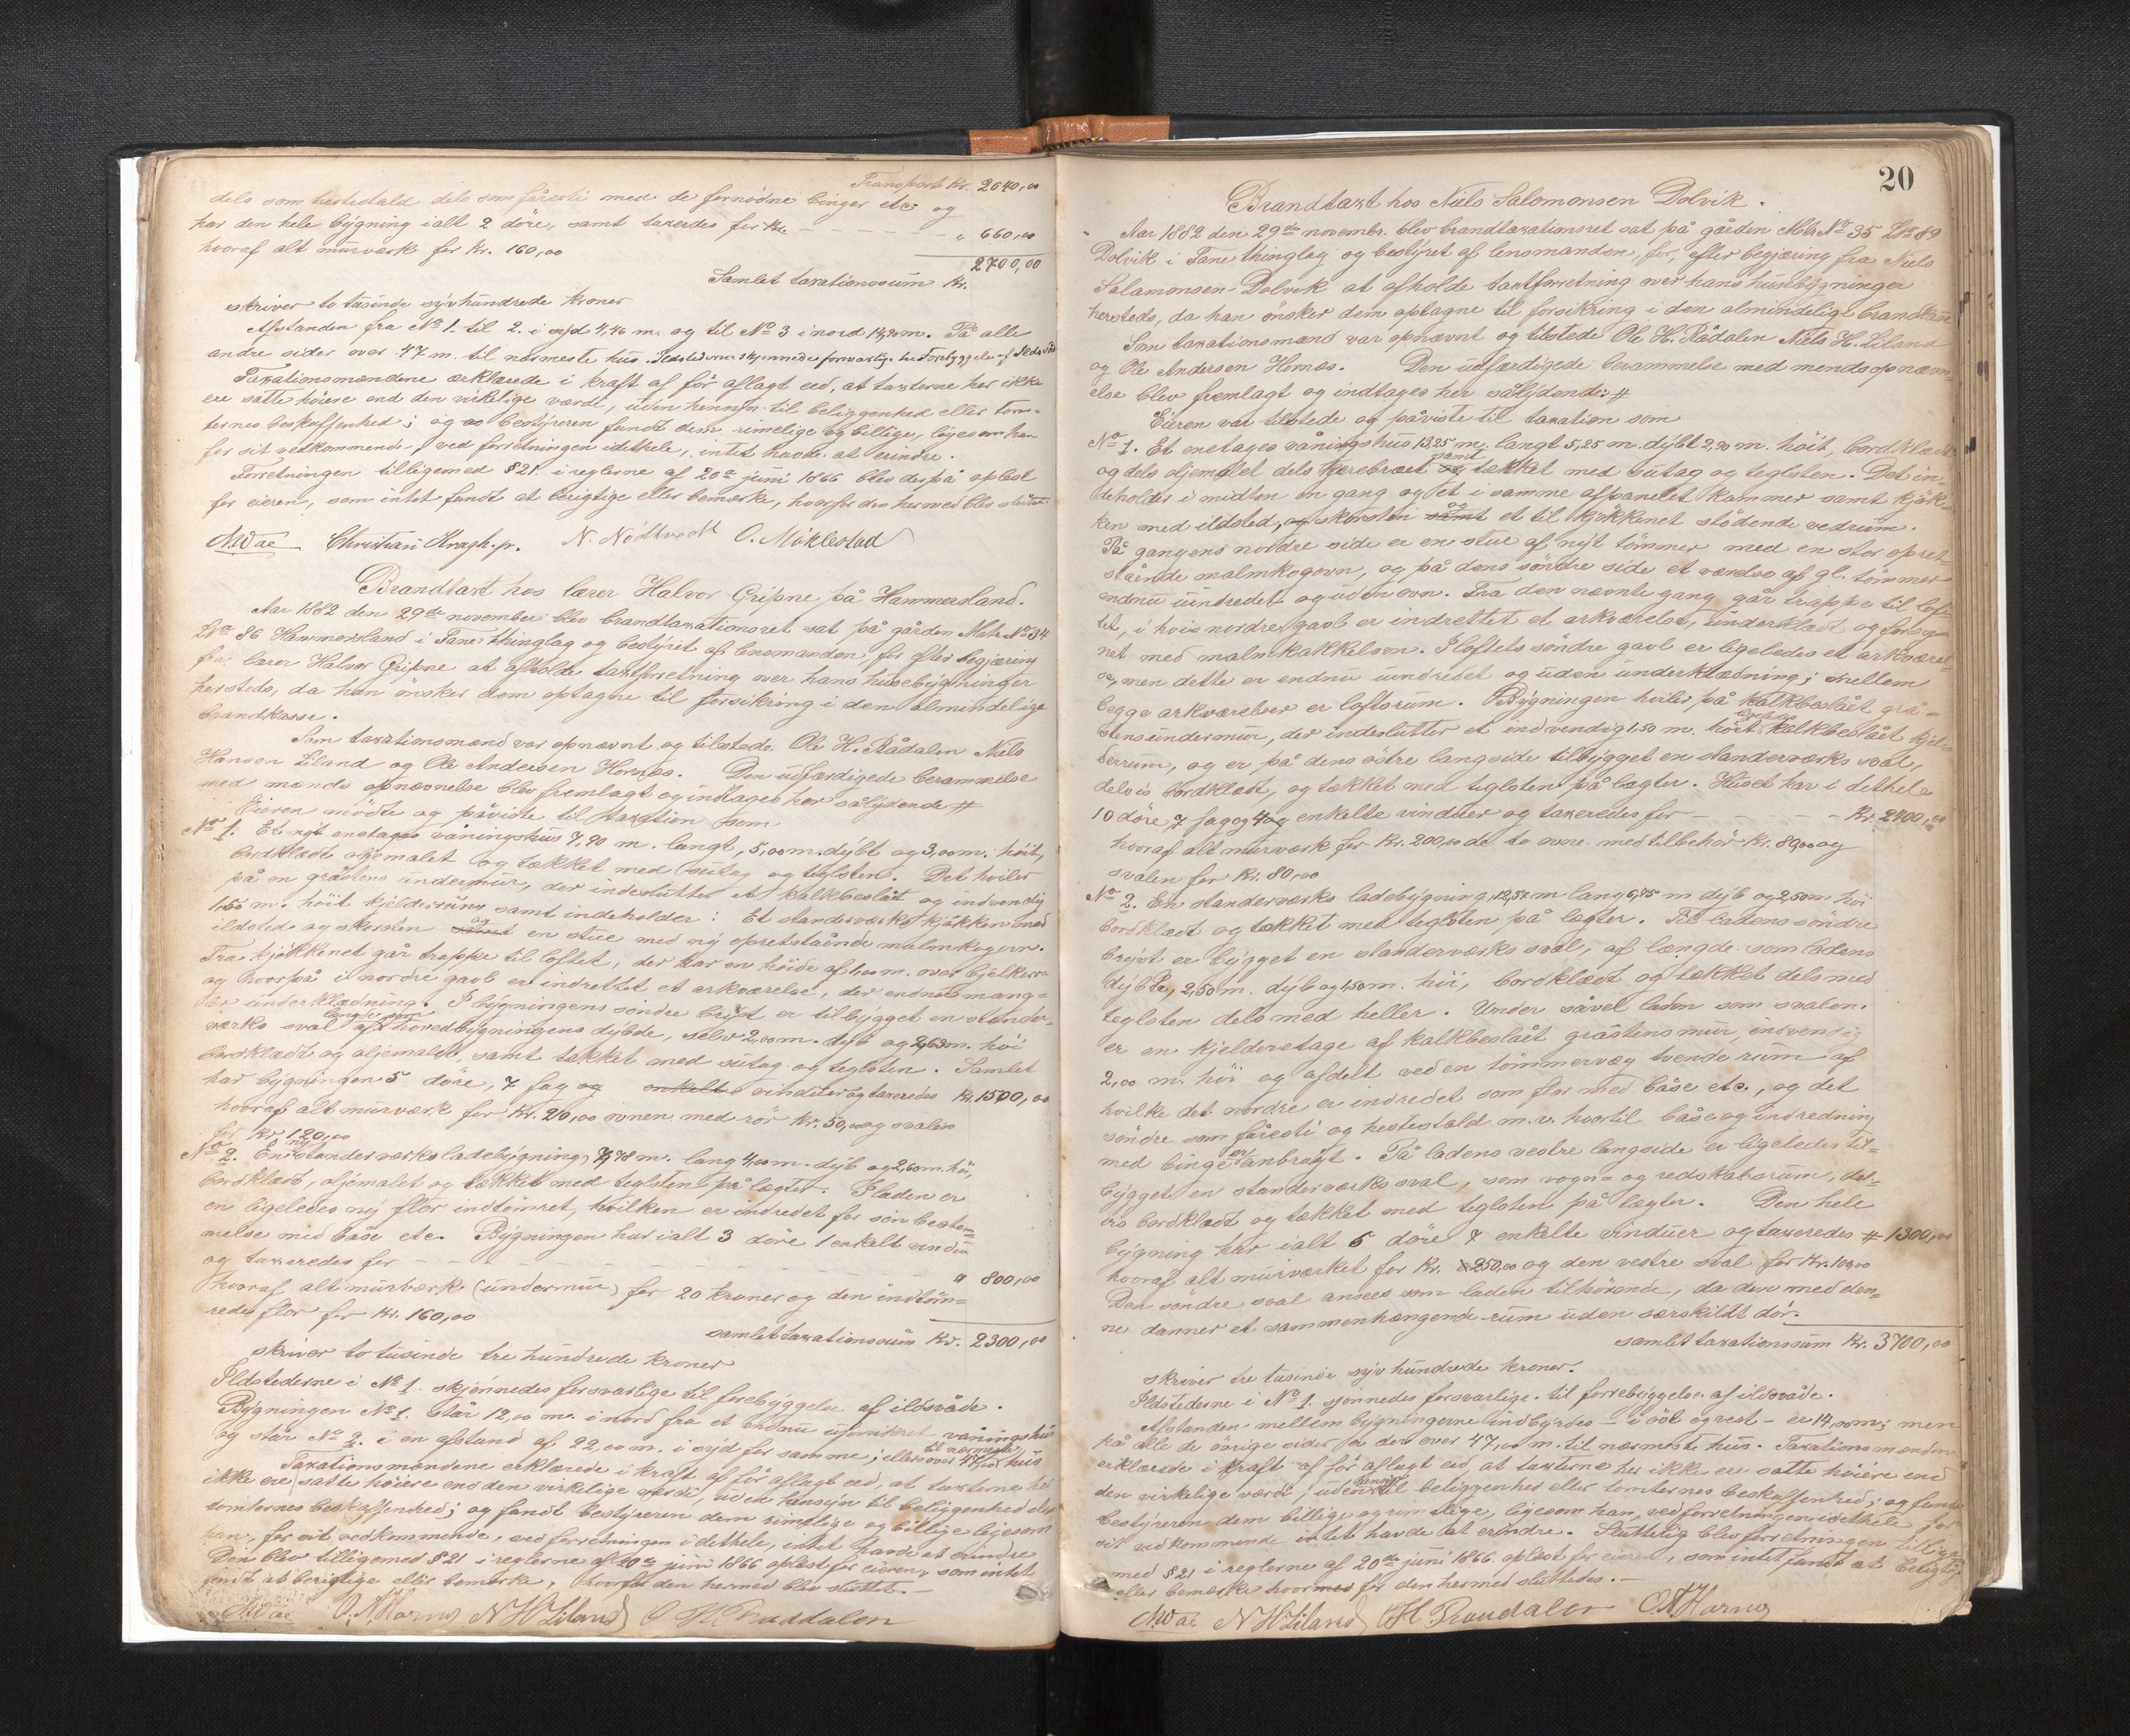 Transport Kr. 2040,00
dels som hestestald dels som fåresti med de fornødne binger etc og
har den hele bygning ialt 2 döre, samt taxeredes for Kr. " 660,00
hvoraf alt murværk for Kr. 160,00
Samlet taxationssum Kr. 2700,00
skriver to tusinde syvhundrede kroner
Afstanden fra No 1. til 2. i syd 4,46 m. og til No 3 i nord 14,90 m. På alle
andre sider over 47 m. til nærmeste hus. Ildstederne skjønnedes forsvarlige til Forebyggelse af Ildsvåde
Taxationsmændene erklærede i kraft af för aflagt eed, at taxterne her ikke
ere satte höiere end den virkelige værdi, uden hensyn til beliggenhed eller tom-
ternes beskaffenhed; og bestyreren fandt dem rimelige og billige, ligesom han
for sit vedkommende, ved forretningen idethele, intet havde at erindre.
Forretningen tilligemed § 21 i reglerne af 20de juni 1866 blev derpå oplæst
for eieren, som intet fandt at berigtige eller bemærke, hvorfor den hermed blev sluttet.
Christian Kragh. p. N. Nødtvedt O. Möklestad
Brandtaxt hos lærer Halvor Gripne på Hammersland.
Aar 1882 den 29de november blev brandtaxationsret sat på gården Matr. No 34
LNo 86 Hammersland i Fane thinglag og bestyret af lensmanden, for efter begjæring
fra lærer Halvor Gripne at afholde taxtforretning over hans husebygninger
hersteds, da han önsker dem optagne til forsikring i den almindelige
brandkasse.
Som taxationsmænd var opnævnt og tilstede Ole H. Rådalen Niels
Hansen Liland og Ole Andersen Hornæs. Den udfærdigede berammelse
med mænds opnævnelse blev fremlagt og indtages her sålydende #
Eieren mödte og påviste til taxation som
No 1. Et nyt enetages våningshus 7,90 m. langt, 5,00 m. dybt og 3,00 m. höit,
bordklædt oljemalet og tækket med sutag og teglsten. Det hviler
på en gråstens undermur, der indeslutter et kalkbeslået og indvendig
1,65 m. höit kjelderrum samt indeholder: Et standerværks kjökken med
ildsted og skorsten og samt en stue med ny opretstående malmkogovn.
Fra kjökkenet går trappe til loftet, der har en höide af 1,00 m. over bjelkerne
og hvorpå i nordre gavl er indrettet et arkværelse, der endnu mang-
ler underklædning. I bygningens söndre bryst er tilbygget en stander-
værks sval af længde som hovedbygningens dybde, selv 2,00 m. dyb og 2,63 m. höi
bordklædt og oljemalet, samt tækket med sutag og teglsten. Samlet
har bygningen 5 döre, 7 fag og enkelte vinduer og taxeredes Kr. 1500,00
hvoraf alt murværk for Kr. 200,00 ovnen med rör Kr. 50,00 og svalen
for Kr. 120,00
No 2. En ny standerværks ladebygning, 7,48 m. lang 4,00 m. dyb og 2,60 m. höi,
bordklædt, oljemalet og tækket med teglsten på lægter. I laden er
en ligeledes ny flor indtömret, hvilken er indredet for sin bestem-
melse med båse etc. Bygningen har ialt 3 döre 1 enkelt vindu
og taxeredes for " 800,00
hvoraf alt murværk (undermur) for 20 kroner og den indtöm-
rede flor for Kr. 160,00
samlet taxationssum Kr. 2300,00
skriver to tusinde tre hundrede kroner
Ildstederne i No 1. skjønnedes forsvarlige til forebyggelse af ildsvåde.
Bygningen No 1. står 12,00 m. i nord fra et endnu uforsikret våningshus
og står No 2. i en afstand af 22,00 m. i syd for samme; ellers over 47,00 til nærmeste hus
Taxationsmændene erklærede i kraft af för aflagt eed, at taxterne her
ikke ere satte höiere end den virkelige værdi, uden hensyn til beliggenhed eller
tomternes beskaffenhed; og fandt bestyreren dem rimelige og billige ligesom
han, for sit vedkommende, ved forretningen i dethele, intet havde at erindre
Den blev tilligemed § 21 i reglerne af 20de juni 1866 oplæst for eieren, som intet
fandt at berigtige eller bemærke, hvorfor den hermed blev sluttet.
O. A Hornes N H Liland O H Raadalen
20
Brandtaxt hos Niels Salomonsen Dolvik.
Aar 1882 den 29de novembr. blev brandtaxationsret sat på gården Mtr. No 35 LNo 89
Dolvik i Fane thinglag og bestyret af lensmanden, for, efter begjæring fra Niels
Salamonsen Dolvik at afholde taxtforretning over hans husebygninger
hersteds, da han önsker dem optagne til forsikring i den almindelige brandkasse
Som taxationsmænd var opnævnt og tilstede Ole H. Rådalen Niels H. Liland
og Ole Andersen Hornæs. Den udfærdigede berammelse med mændsopnævn-
else blev fremlagt og indtages her sålydende: #
Eieren var tilstede og påviste til taxation som
No 1. Et enetages våningshus 13,25 m. langt 5,25 m. dybt 2,90 m. höit, bordklædt
og dels oljemalet dels tjærebræet samt og tækket med sutag og teglsten. Det in-
deholder i midten en gang og et i samme afpanelet kammer samt kjök-
ken med ildsted, og skorsten og samt et til kjökkenet stödende vedrum.
På gangens nordre side er en stue af nyt tömmer med en stor opret-
stående malmkogovn, og på dens söndre side et værelse af gl. tömmer
endnu uindredet og uden ovn. Fra den nævnte gang går trappe til lof-
tet, i hvis nordre gavl er indrettet et arkværelse, underklædt og forsy-
net med malmkakkelovn. I loftets söndre gavl er ligeledes et arkværel-
se, men dette er endnu uindredet og uden underklædning; mellem
begge arkværelser er loftsrum. Bygningen hviler på kalkbeslået grå-
stensundermur, der indeslutter et indvendig 1,50 m. höit ligeledes kalkbeslået kjel-
derrum, og er på dens östre langside tilbygget en standerværks sval,
delvis bordklædt, og tækket med teglsten på lægter. Huset har i dethele
10 döre 7 fag og 4 enkelte vinduer og taxeredes for Kr. 2400,00
hvoraf alt murværk for Kr. 200,00 de to ovne med tilbehör Kr. 80,00 og
svalen for Kr. 80,00
No 2. En standerværks ladebygning, 12,57 m lang 6,75 m dyb og 2,50 m höi
bordklædt og tækket med teglsten på lægter. På ladens söndre
bryst er bygget en standerværks sval, af længde som ladens
dybde, 2,50 m. dyb og 1,50 m. höi, bordklædt og tækket dels med
teglsten dels med heller. Under såvel laden som svalen
er en kjelderetage af kalkbeslået gråstensmur, indvendig
2,00 m. höi og afdelt ved en tömmervæg tvende rum af
hvilke det nordre er indredet som flor med båse etc., og det
söndre som fåresti og hestestald m. v. hvortil båse og indredning
med binge er anbragt. På ladens vestre langside er ligeledes til-
bygget en standerværks sval, som vogn- og redskabsrum, del-
vis bordklædt og tækket med teglsten på lægter. Den hele
bygning har ialt 6 döre 7 enkelte vinduer og taxeredes # 1300,00
hvoraf alt murværket for Kr. 250,00 og den vestre sval for Kr. 100,00
Den söndre sval ansees som laden tilhörende, da den med den-
ne danner et sammenhængende rum uden særskildt dör.
samlet taxationssum Kr. 3700,00
skriver tre tusinde syv hundrede kroner.
Ildstederne i No 1. sjønnedes forsvarlige til forrebyggelse af ildsvåde.
Afstanden mellem bygningerne indbyrdes - i öst og vest - er 14,00 m; men
på alle de övrige sider er der over 47,00 m. til nærmeste hus. Taxationsmændene
erklærede i kraft af för aflagt eed, at taxterne her ikke ere satte höiere end
den virkelige værdi, uden hensyn til beliggenhed eller tomternes beskaffenhed; og fandt
bestyreren dem billige og rimelige, ligesom han, ved forretningen i dethele for
sit vedkommende intet havde at erindre. Sluttelig blev forretningen tillige-
med § 21 i reglerne af 20de juni 1866 oplæst for eieren, som intet fandt at berigtige
eller bemærke hvormed for den hermed sluttedes.
N H Liland O H Raadalen O. A Hornes